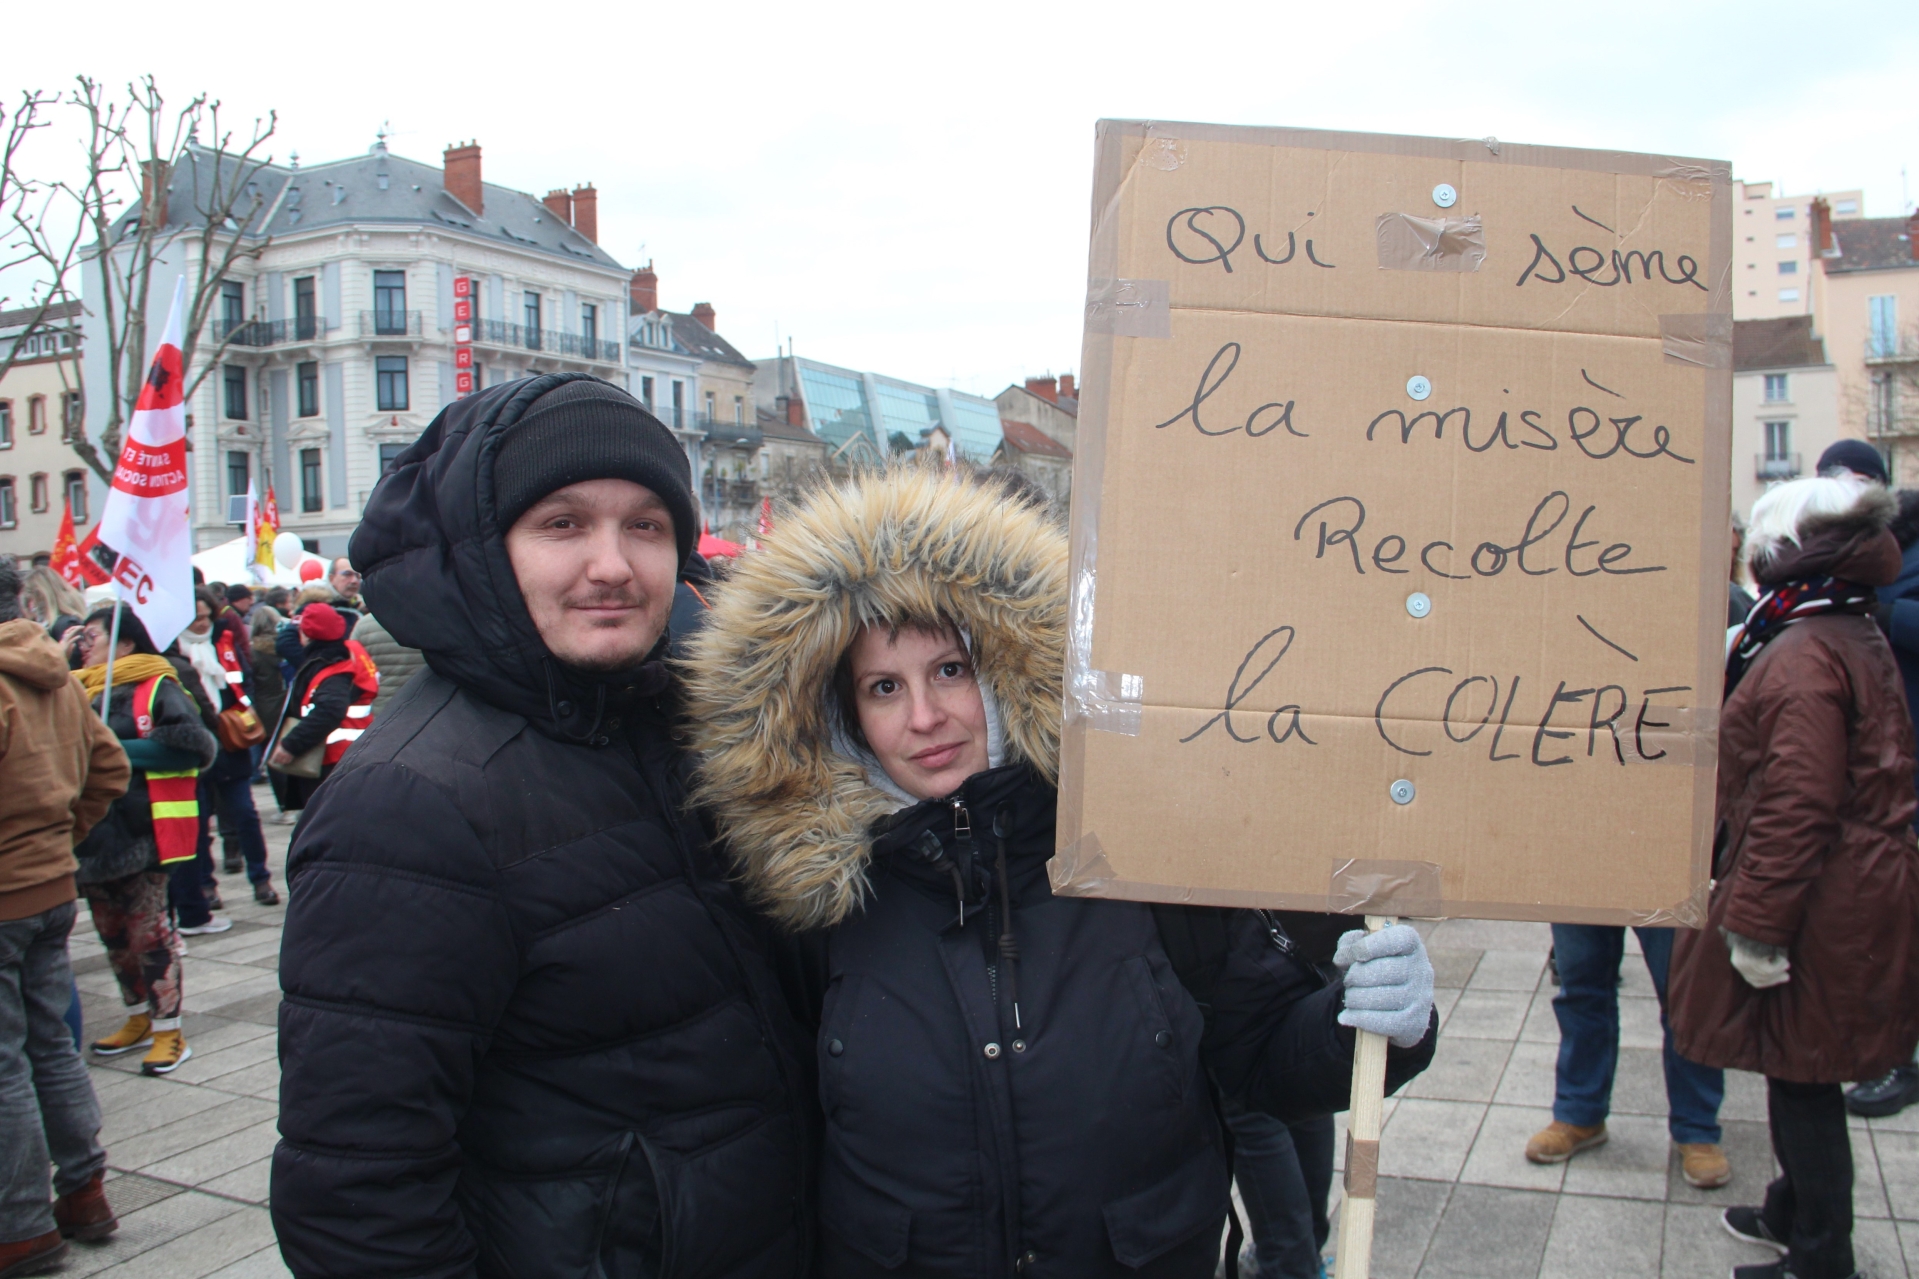 Qui sème
la misère
Recolte
la COLÈRE
GEORG
SANTÉ ET
ACTION SOCIALE